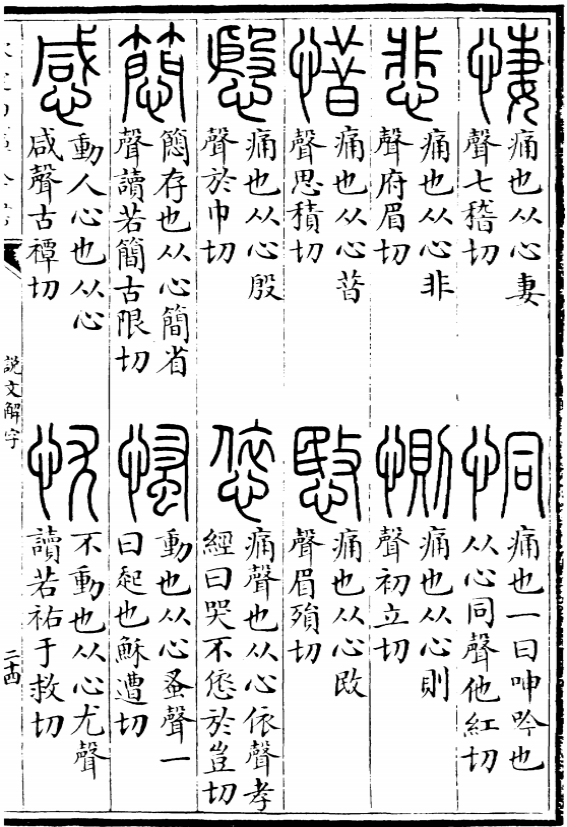 悽
痛也从心妻
聲七稽切
恫
痛也一曰呻吟也
从心同聲他紅切
悲
痛也从心非
聲府眉切
惻
痛也从心則
聲初立切
惜
痛也从心昔
聲思積切
愍
痛也从心敃
聲眉殞切
慇
痛也从心殷
聲於巾切
㥋
痛聲也从心依聲孝
經曰哭不㥋於豈切
簡存也从心簡省
聲讀若簡古限切
慅
動也从心蚤聲一
曰起也穌遭切
感
動人心也从心
咸聲古禫切
忧
不動也从心尤聲
讀若祐于救切
説文解字
二十四